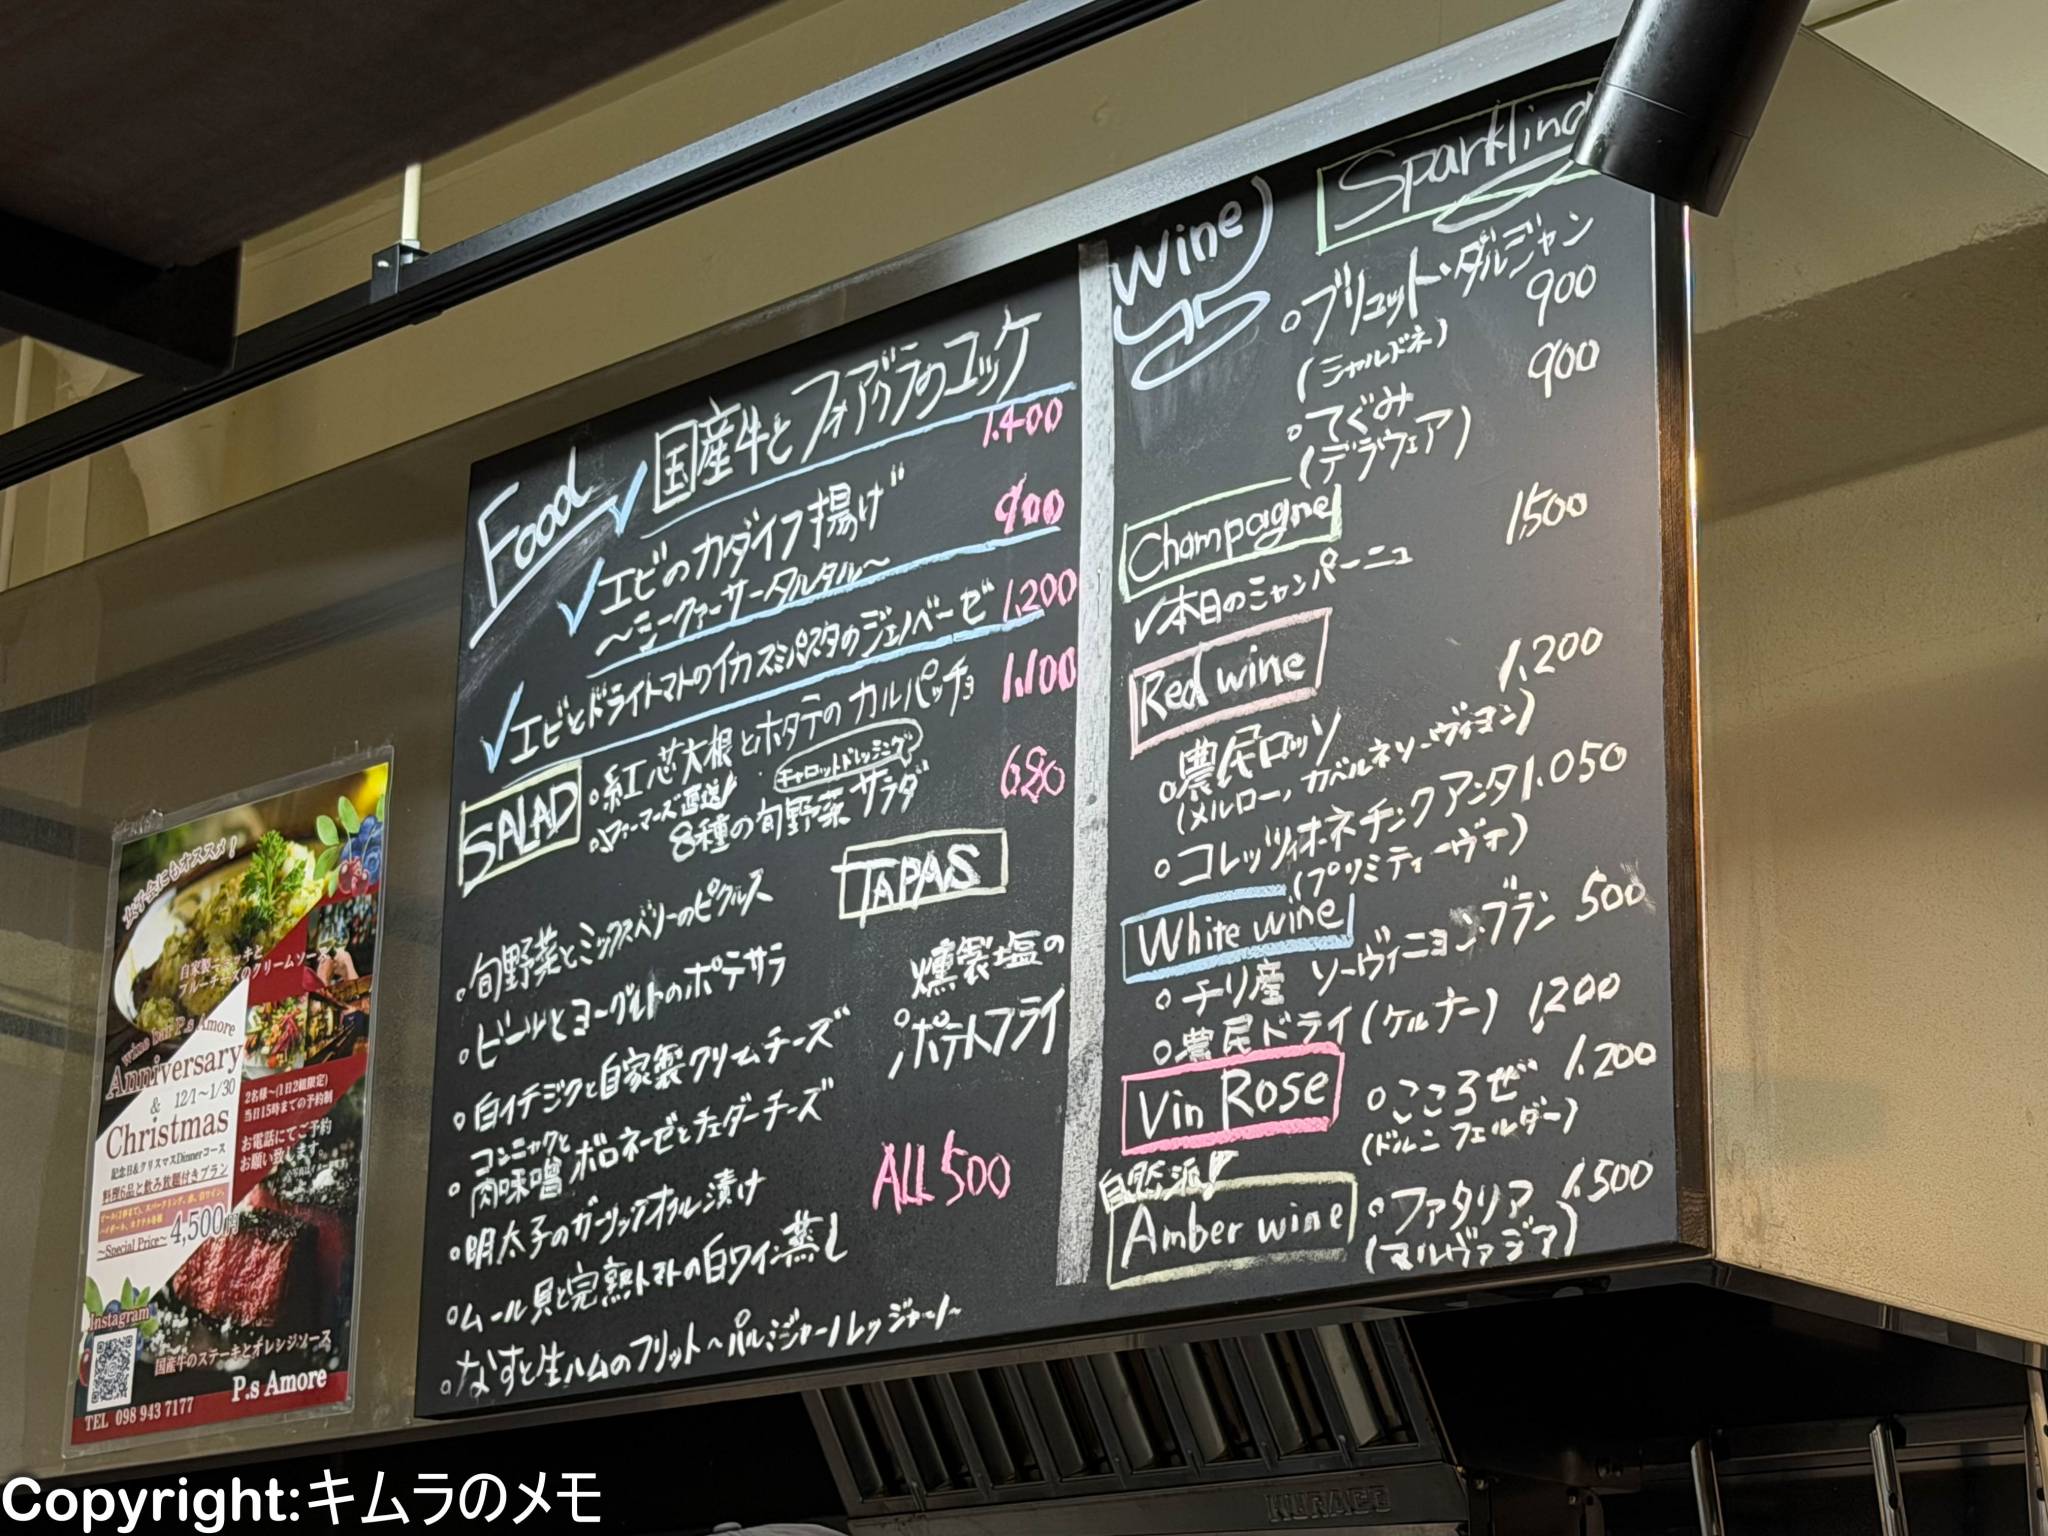 Food
✓国産牛とフォアグラのユッケ
1.400
✓エビのカダイフ揚げ
900
〜シークァーサータルタル〜
✓エビとドライトマトのイカスミパスタのジェノベーゼ 1.200
SALAD
○紅芯大根とホタテのカルパッチョ 1.100
ファーマーズ直送!
キャロットドレッシング
8種の旬野菜サラダ 680
TAPAS
○旬野菜とミックスベリーのピクルス
○ビーツとヨーグルトのポテサラ
○白イチジクと自家製クリームチーズ
○コンニャクと
肉味噌ボロネーゼとチェダーチーズ
○明太子のガーリックオイル漬け
○ムール貝と完熟トマトの白ワイン蒸し
○なすと生ハムのフリット〜パルミジャーノレッジャーノ〜
燻製塩の
ポテトフライ
ALL 500
Wine
Sparkling
○ブリュット・ダルジャン
900
(シャルドネ)
○てぐみ
900
(デラウェア)
Champagne
✓本日のシャンパーニュ
1,500
Red wine
○農民ロッソ
1,200
(メルロー,カベルネソーヴィヨン)
○コレッツィオーネチンクアンタ 1.050
(プリミティーヴォ)
White wine
○チリ産 ソーヴィニヨン・ブラン 500
○農民ドライ(ケルナー) 1,200
Vin Rose
○こころぜ 1.200
(ドルンフェルダー)
自然派!
Amber wine
○ファタリア 1.500
(マルヴァジア)
女子会にもオススメ!
自家製ニョッキと
ブルーチーズのクリームソース
wine bar P.s Amore
Anniversary
& 12/1〜1/30
Christmas
記念日&クリスマスDinnerコース
料理6品と飲み放題付きプラン
〜Special Price〜 4,500円
2名様〜(1日2組限定)
当日15時までの予約制
お電話にてご予約
お願い致します
Instagram
国産牛のステーキとオレンジソース
P.s Amore
TEL 098 943 7177
KURACO
Copyright:キムラのメモ